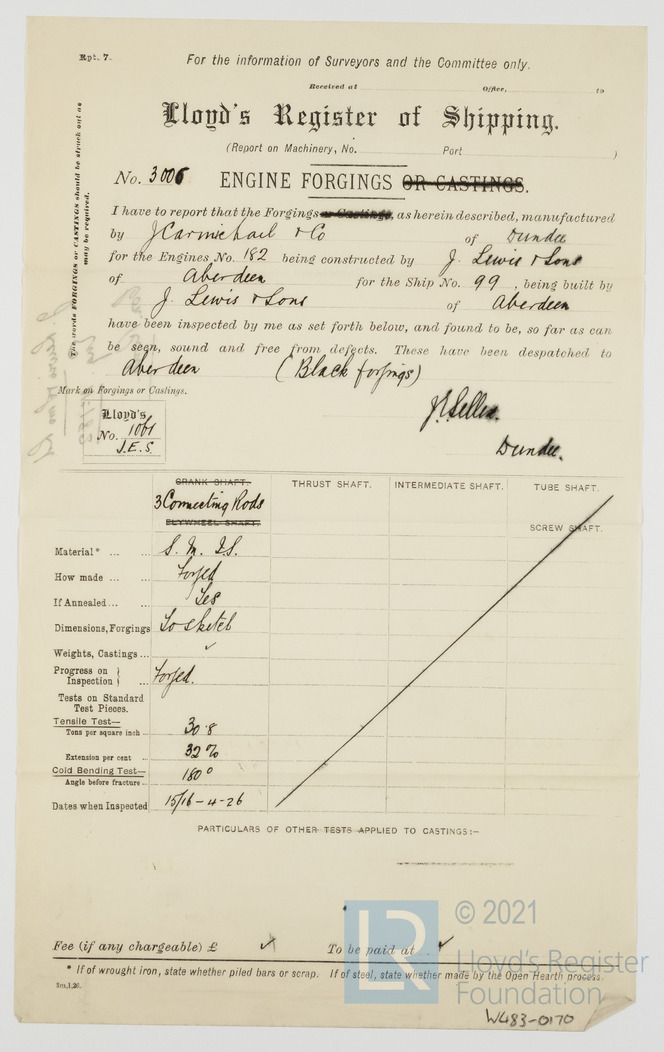 Rpt. 7.
For the information of Surveyors and the Committee only.
Received at Office, to
Lloyd's Register of Shipping.
(Report on Machinery, No. Port )
No. 3006 ENGINE FORGINGS OR CASTINGS.
The words FORGINGS or CASTINGS should be struck out as
may be required.
I have to report that the Forgings or Castings, as herein described, manufactured
by J Carmichael & Co of Dundee
for the Engines No. 182 being constructed by J. Lewis & Sons
of Aberdeen for the Ship No. 99, being built by
J. Lewis & Sons of Aberdeen
have been inspected by me as set forth below, and found to be, so far as can
be seen, sound and free from defects. These have been despatched to
Aberdeen (Black forgings)
Mark on Forgings or Castings.
Lloyd's
No. 1061
J.E.S.
Dundee.
CRANK SHAFT. THRUST SHAFT. INTERMEDIATE SHAFT. TUBE SHAFT.
3 Connecting Rods
FLYWHEEL SHAFT. SCREW SHAFT.
Material* ... ... S. M. I.S.
How made ... ... Forged
If Annealed ... ... Yes
Dimensions, Forgings To sketch
Weights, Castings ...
Progress on Inspection } ... Forged.
Tests on Standard
Test Pieces.
Tensile Test—
Tons per square inch ... 30.8
Extension per cent ... 32%
Cold Bending Test—
Angle before fracture ... 180°
Dates when Inspected 15/16-4-26
PARTICULARS OF OTHER TESTS APPLIED TO CASTINGS:—
Fee (if any chargeable) £ To be paid at
* If of wrought iron, state whether piled bars or scrap. If of steel, state whether made by the Open Hearth process.
3m,1,26.
LR
© 2021
Lloyd's Register
Foundation
W483-0170